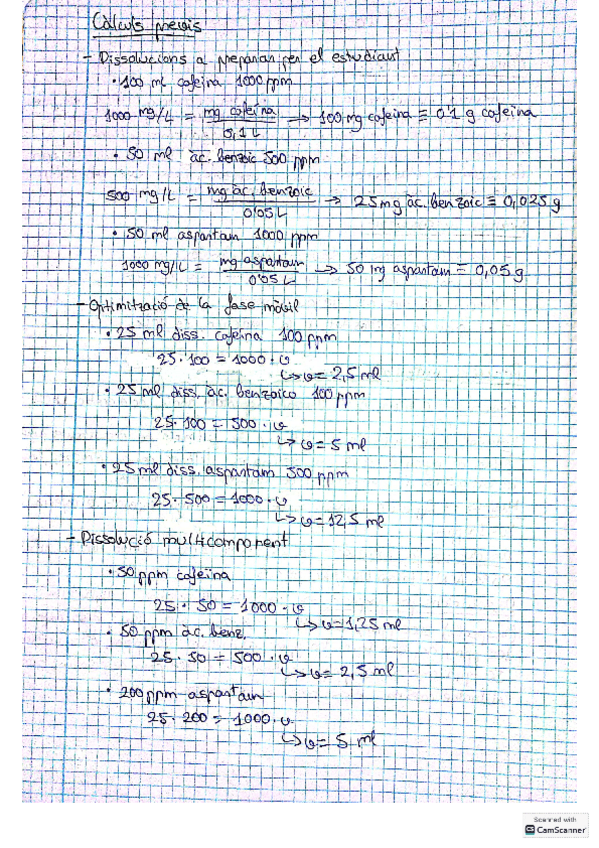 Càlculs previs
- Dissolucions a preparar per el estudiant
• 100 ml cafeïna 1000 ppm
1000 mg/L = mg cafeïna / 0,1 L → 100 mg cafeïna ≡ 0'1 g cafeïna
• 50 ml àc. benzoic 500 ppm
500 mg/L = mg àc. benzoic / 0'05 L → 25 mg àc. benzoic ≡ 0,025 g
• 50 ml aspartam 1000 ppm
1000 mg/L = mg aspartam / 0'05 L → 50 mg aspartam ≡ 0,05 g
- Optimització de la fase mòbil
• 25 ml diss. cafeïna 100 ppm
25 · 100 = 1000 · v
↳ v = 2,5 ml
• 25 ml diss. àc. benzoico 100 ppm
25 · 100 = 500 · v
↳ v = 5 ml
• 25 ml diss. aspartam 500 ppm
25 · 500 = 1000 · v
↳ v = 12,5 ml
- Dissolució multicomponent
• 50 ppm cafeïna
25 · 50 = 1000 · v
↳ v = 1,25 ml
• 50 ppm àc. benz.
25 · 50 = 500 · v
↳ v = 2,5 ml
• 200 ppm aspartam
25 · 200 = 1000 · v
↳ v = 5 ml
Scanned with
CS CamScanner